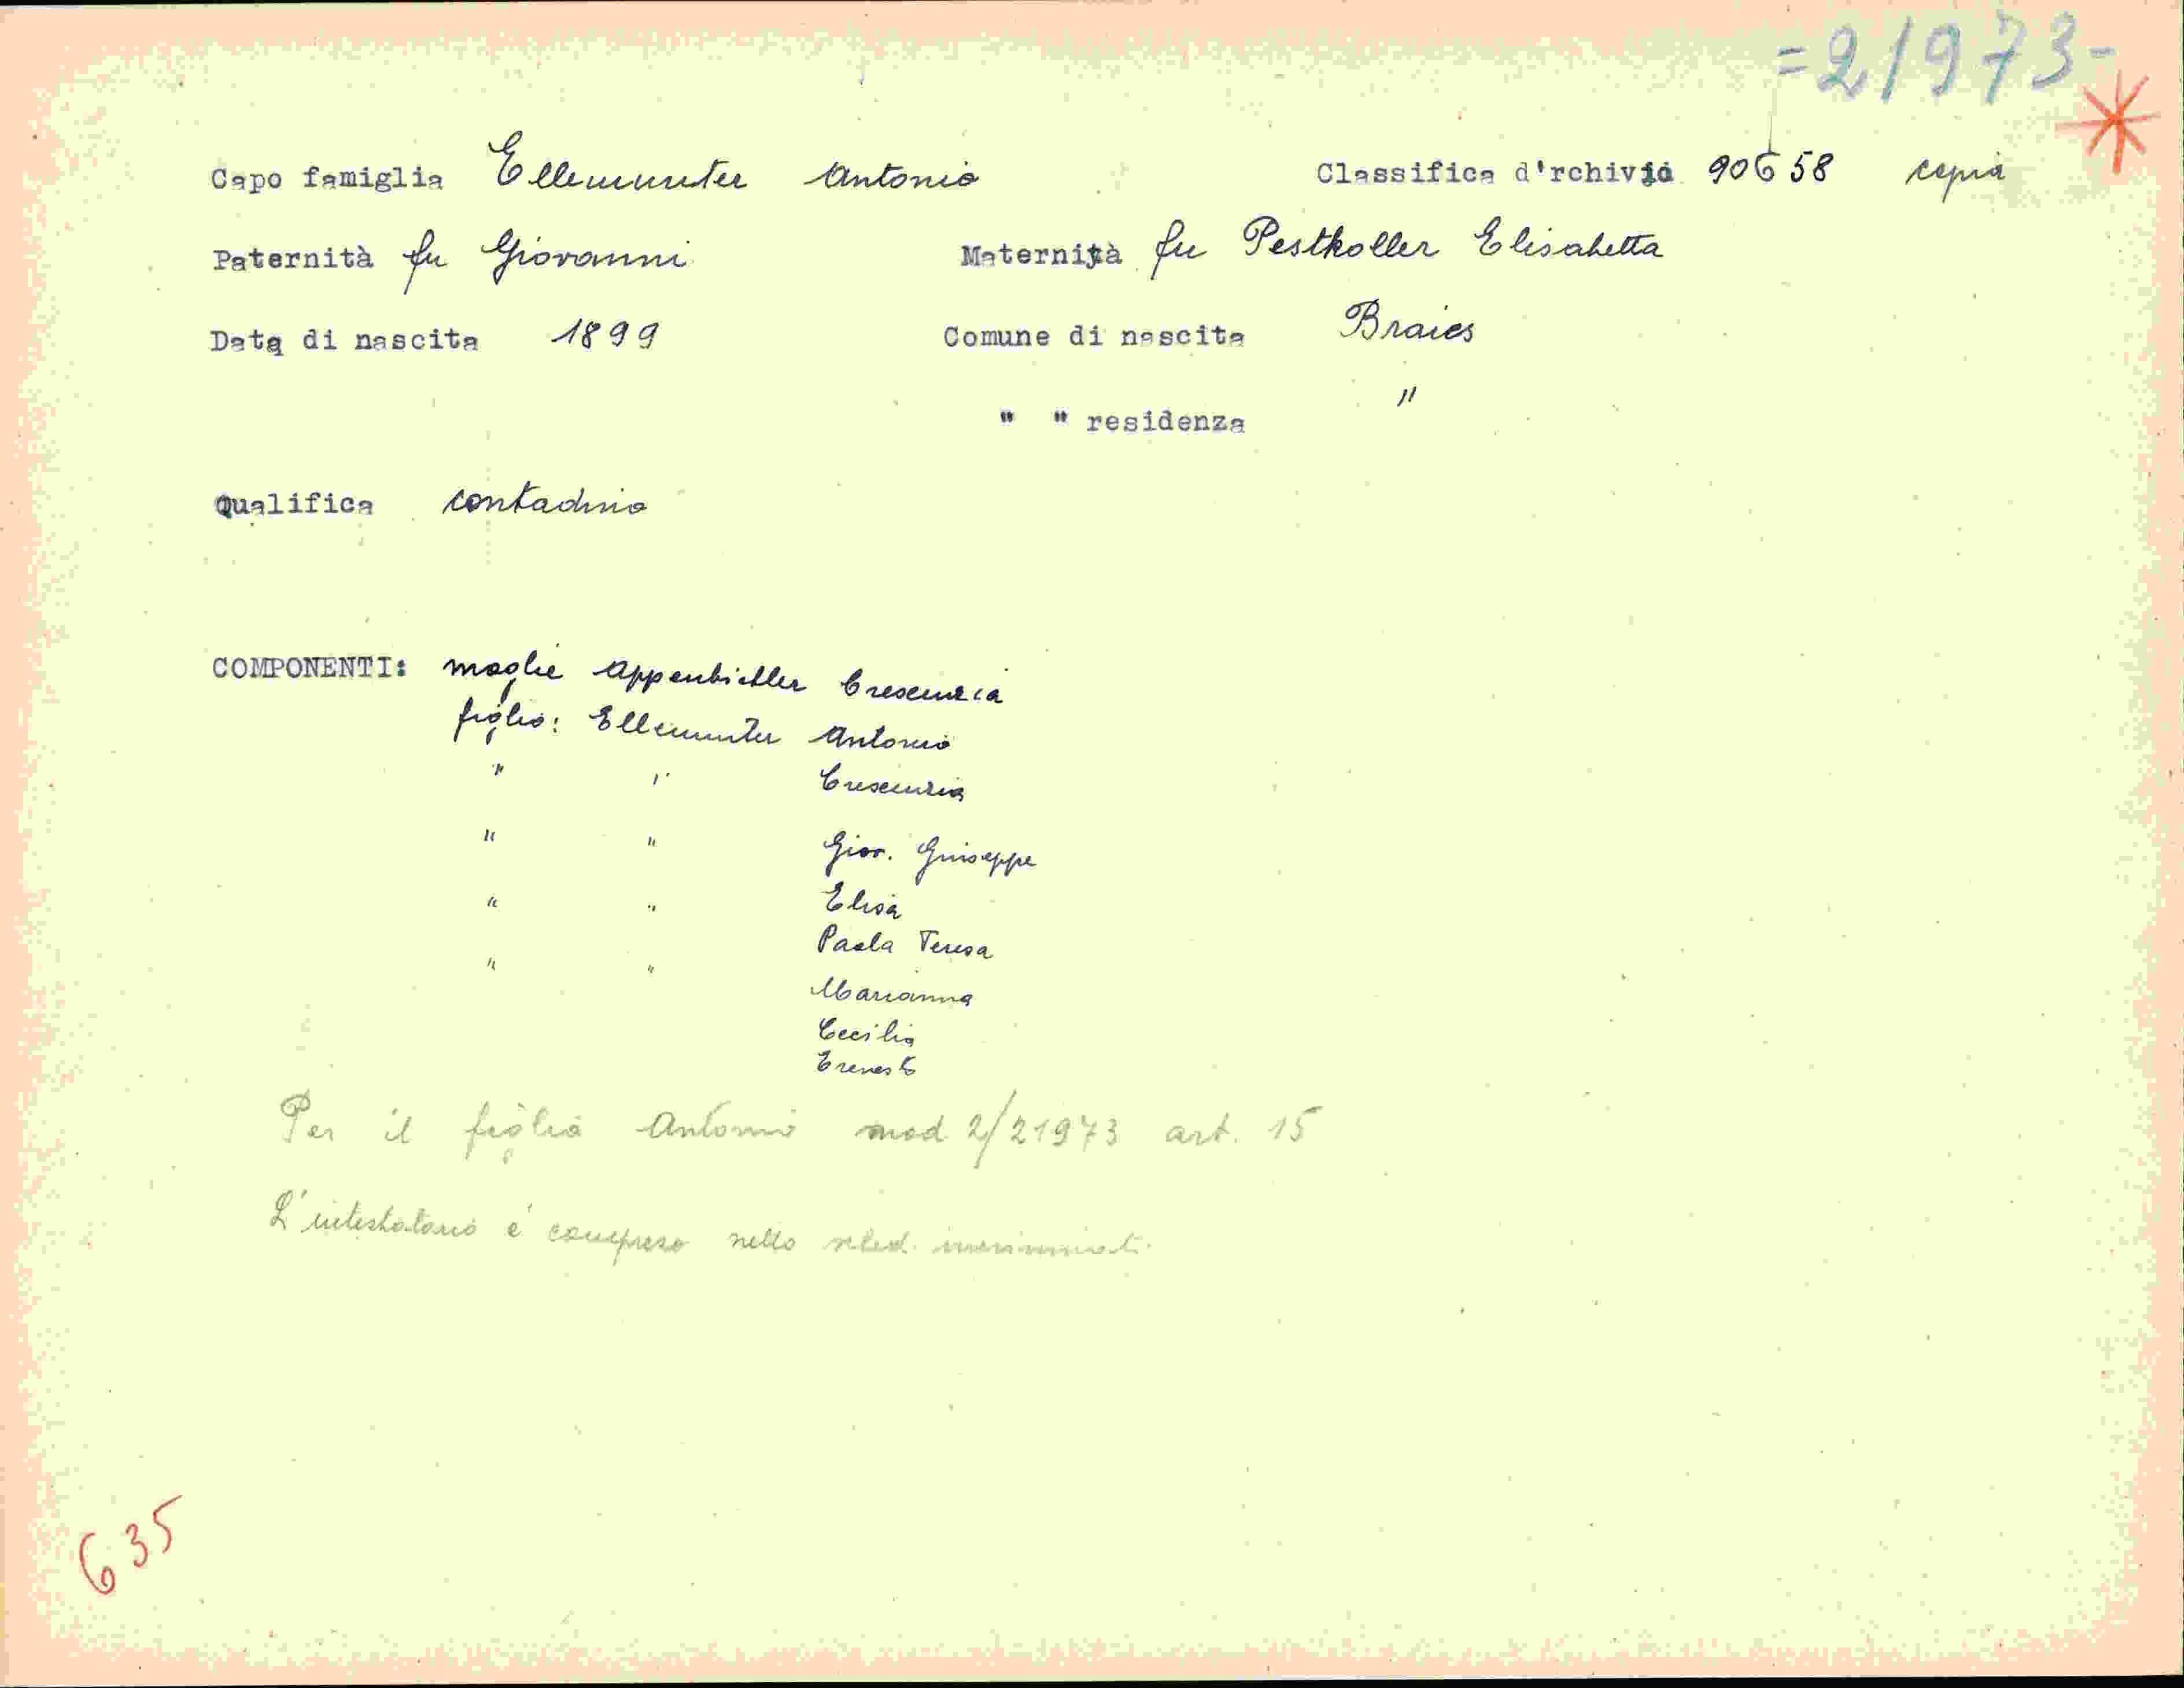 =21973-
Capo famiglia Ellemunter Antonio Classifica d'rchivio 90658 copia
Paternità fu Giovanni Maternità fu Pestkoller Elisabetta
Data di nascita 1899 Comune di nascita Braies
" " residenza "
Qualifica contadino
COMPONENTI: moglie Appenbichler Crescenzia
figlio: Ellemunter Antonio
" " Crescenzia
" " Giov. Giuseppe
" " Elisa
Paola Teresa
" "
Marianna
Cecilia
Erenesto
Per il figlio Antonio mod 2/21973 art. 15
L'intestatario é compreso nello
635